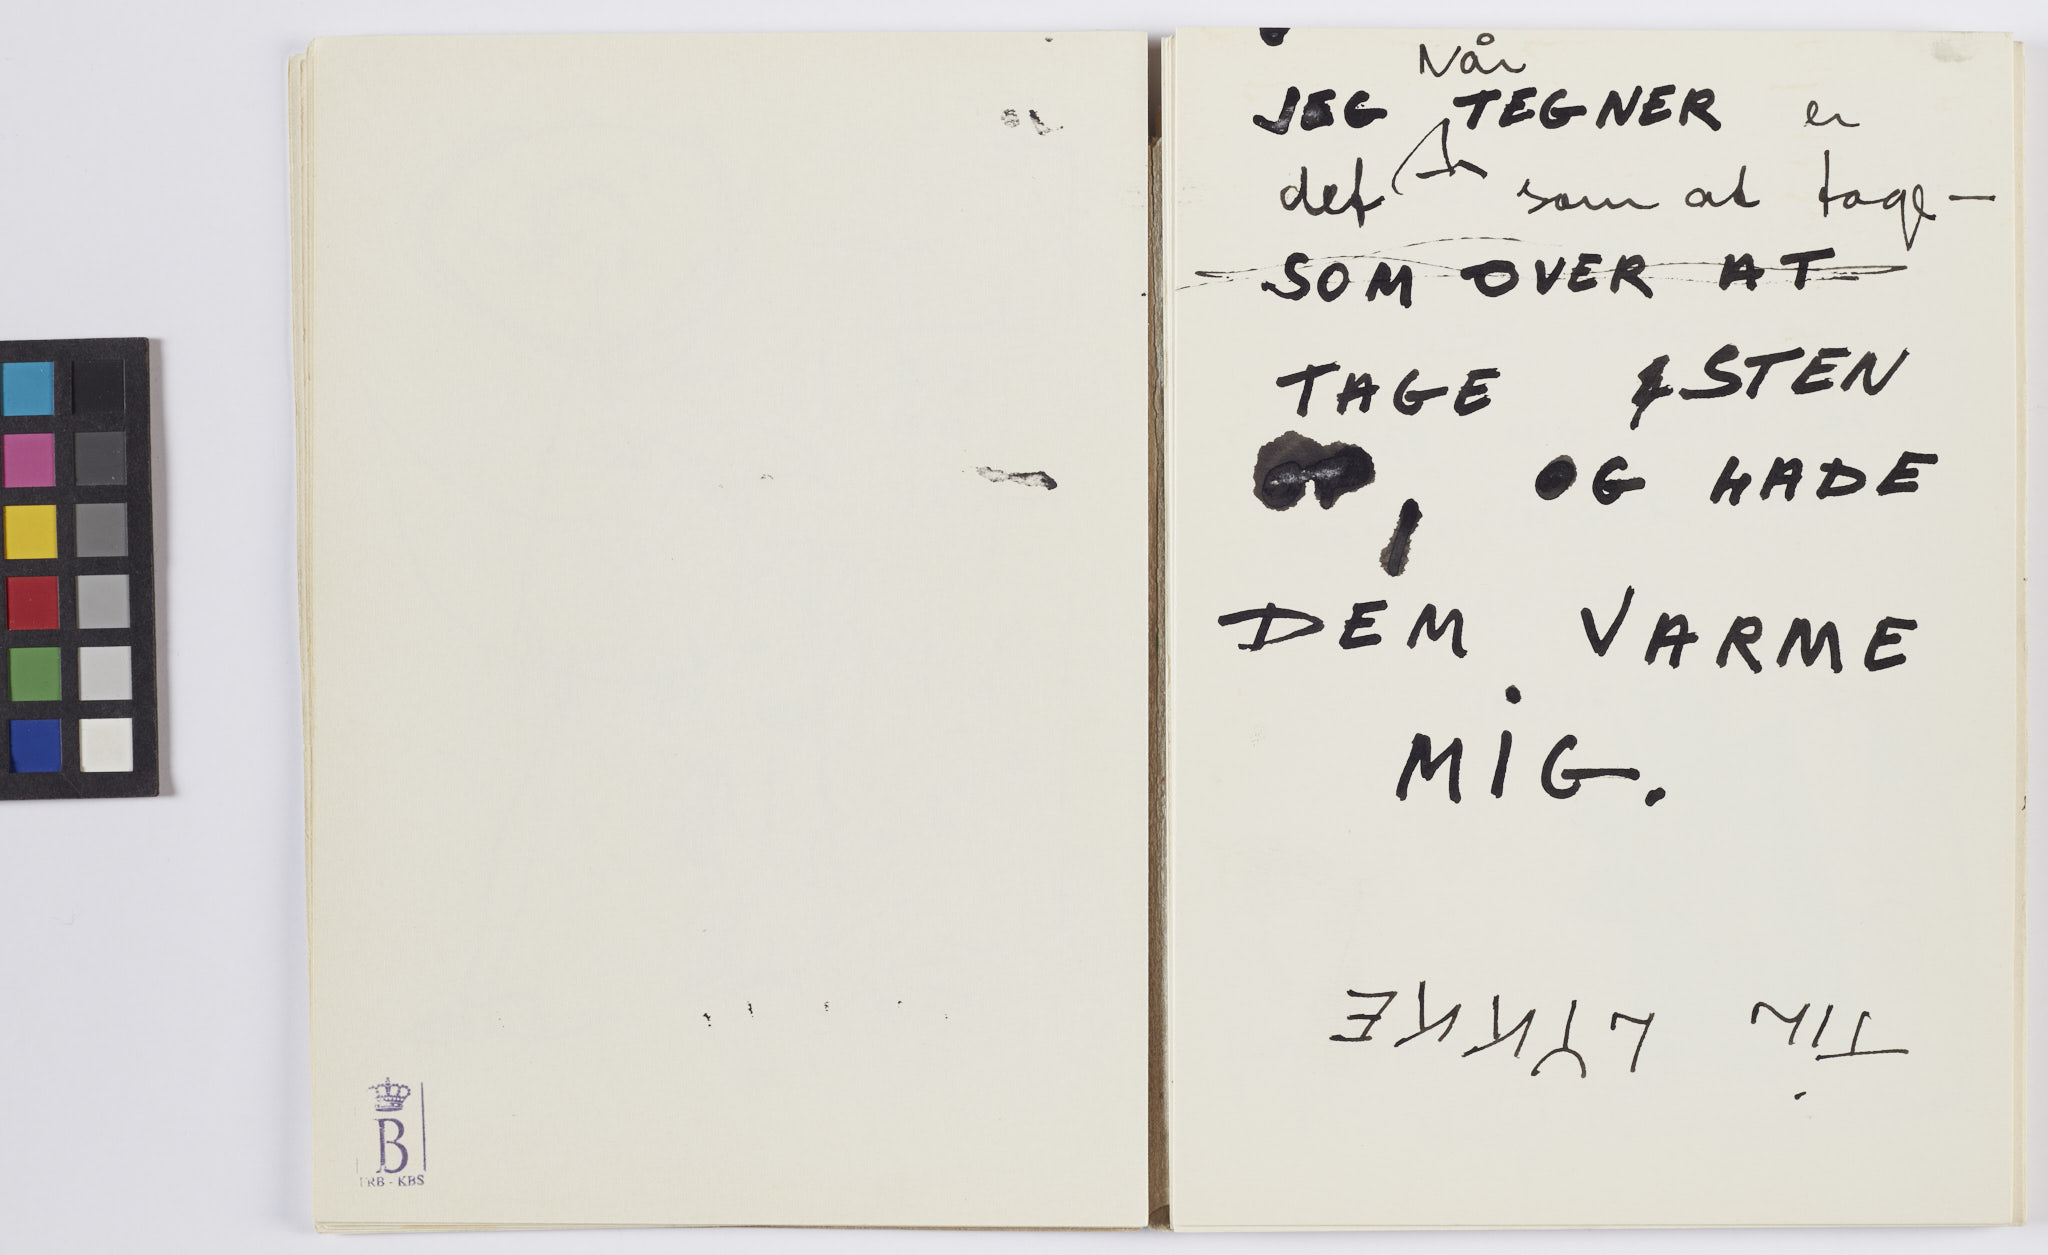 Når
JEG TEGNER er
det som at tage -
SOM OVER AT
TAGE STEN
OP, OG LADE
DEM VARME
MIG.
TIL LYKKE
B
RB - KBS